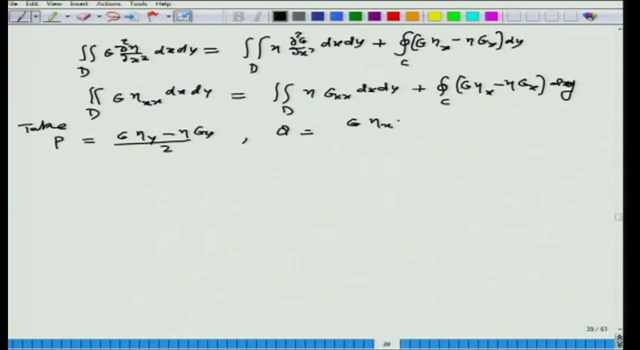 File View Insert Actions Tools Help
∬_D G ∂²η/∂x² dxdy = ∬_D η ∂²G/∂x² dxdy + ∮_C (G η_x − η G_x) dy
∬_D G η_xx dxdy = ∬_D η G_xx dxdy + ∮_C (G η_x − η G_x) dy
Take
P = (G η_y − η G_y)/2 , Q = G η_x
39/61
39